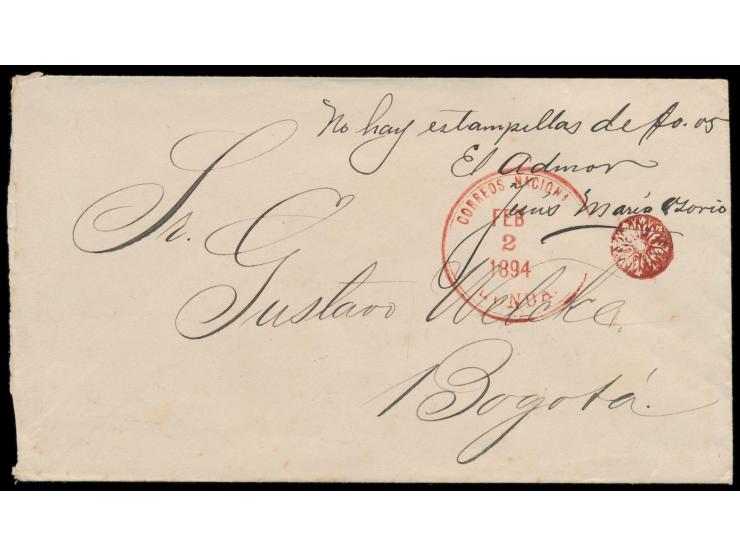 No hay estampillas de $0.05
El Admor
Jesús María Osorio
CORREOS NACIONA
FEB
2
1894
HONDA
Sr.
Gustavo Welcke.
Bogotá.